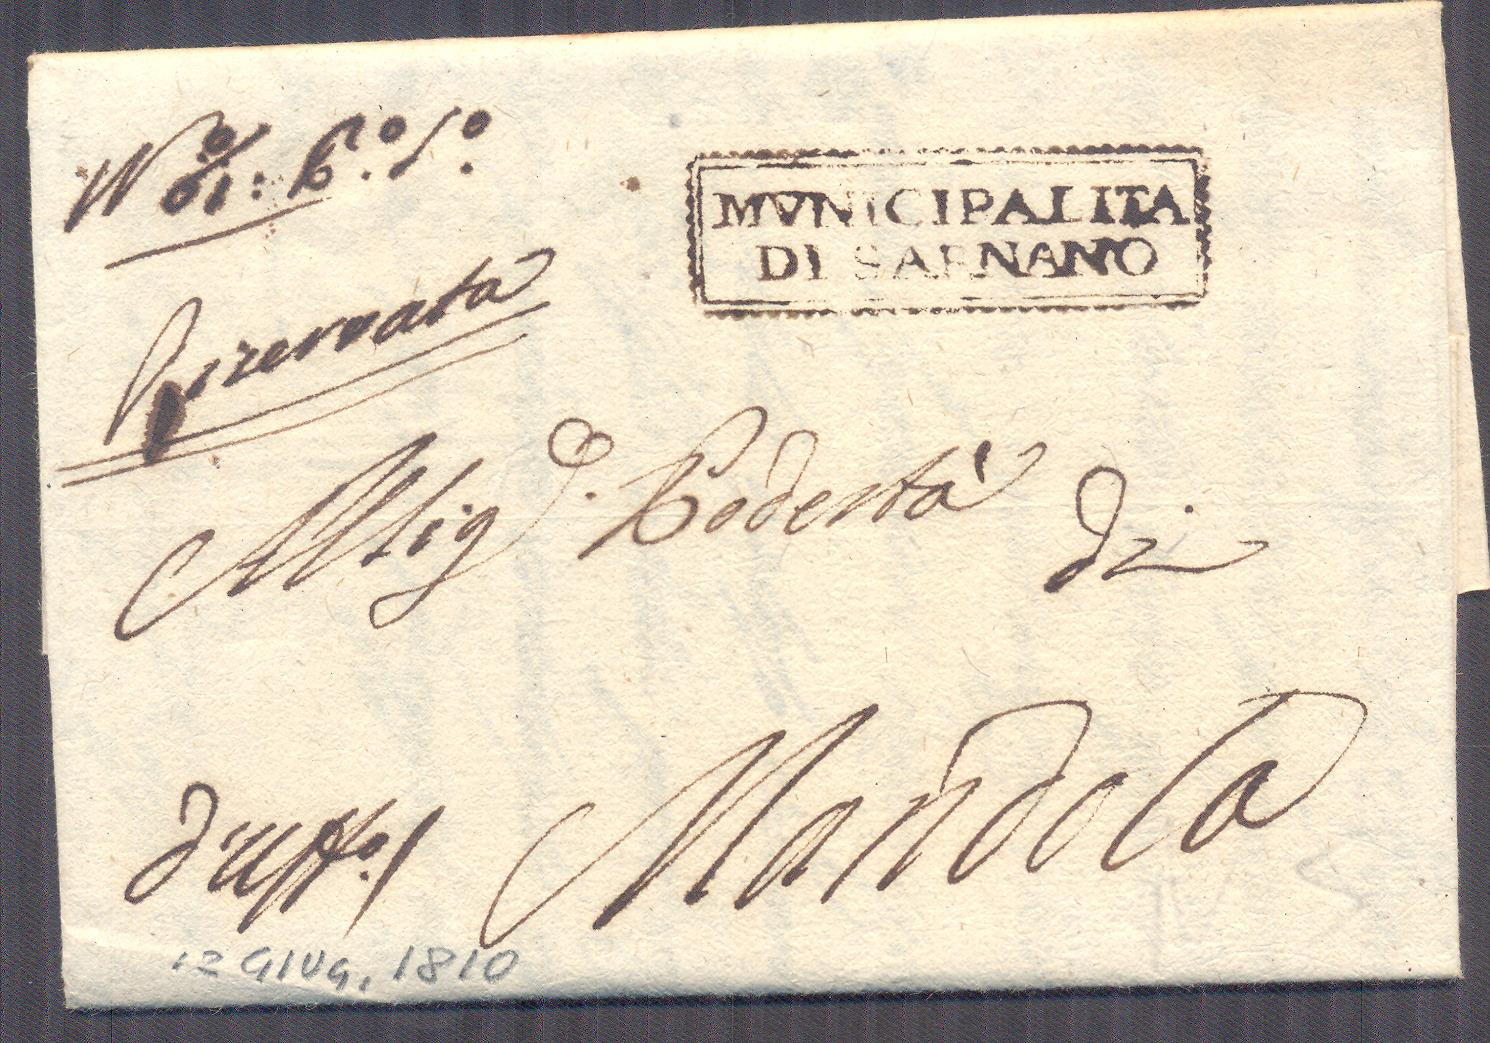 MVNICIPALITA
DI SARNANO
Riservata
Al Sig.r Podestà di
d'uff.o Mandola
12 GIUG. 1810